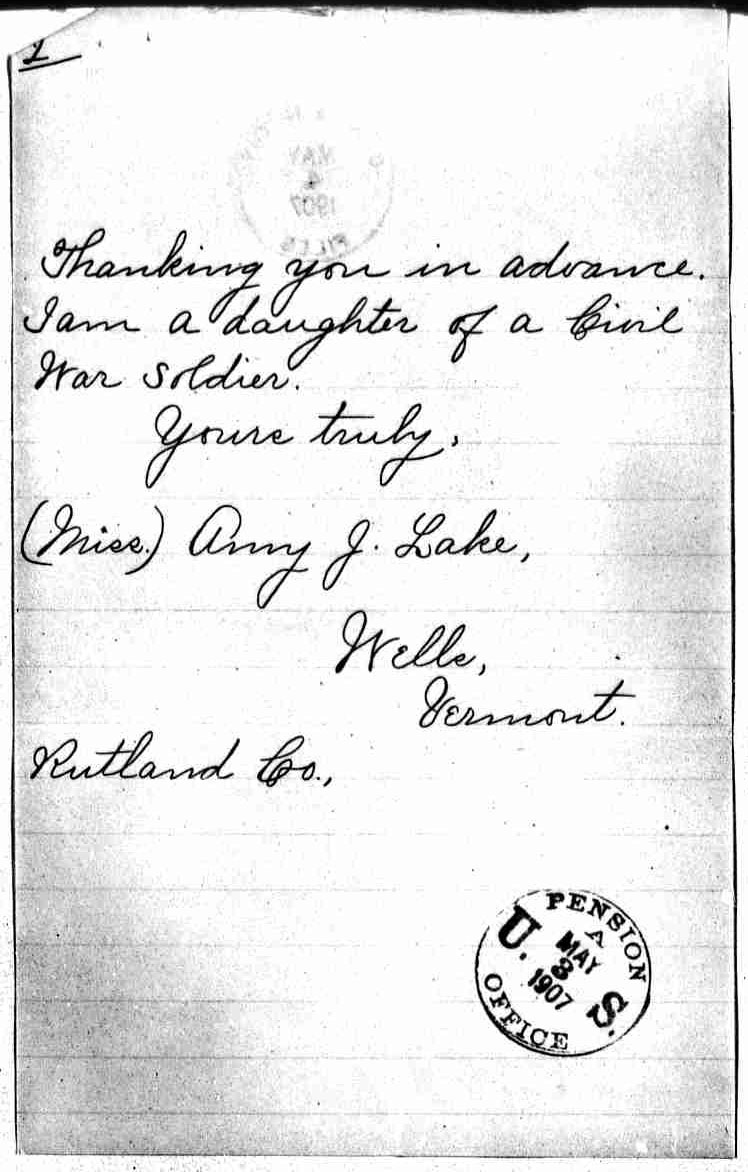 1
Thanking you in advance.
I am a daughter of a Civil
War Soldier.
Yours truly,
(Miss.) Amy J. Lake,
Wells,
Vermont.
Rutland Co.,
PENSION
A
U. S.
MAY
3
1907
OFFICE
MAY
4
1907
FILES